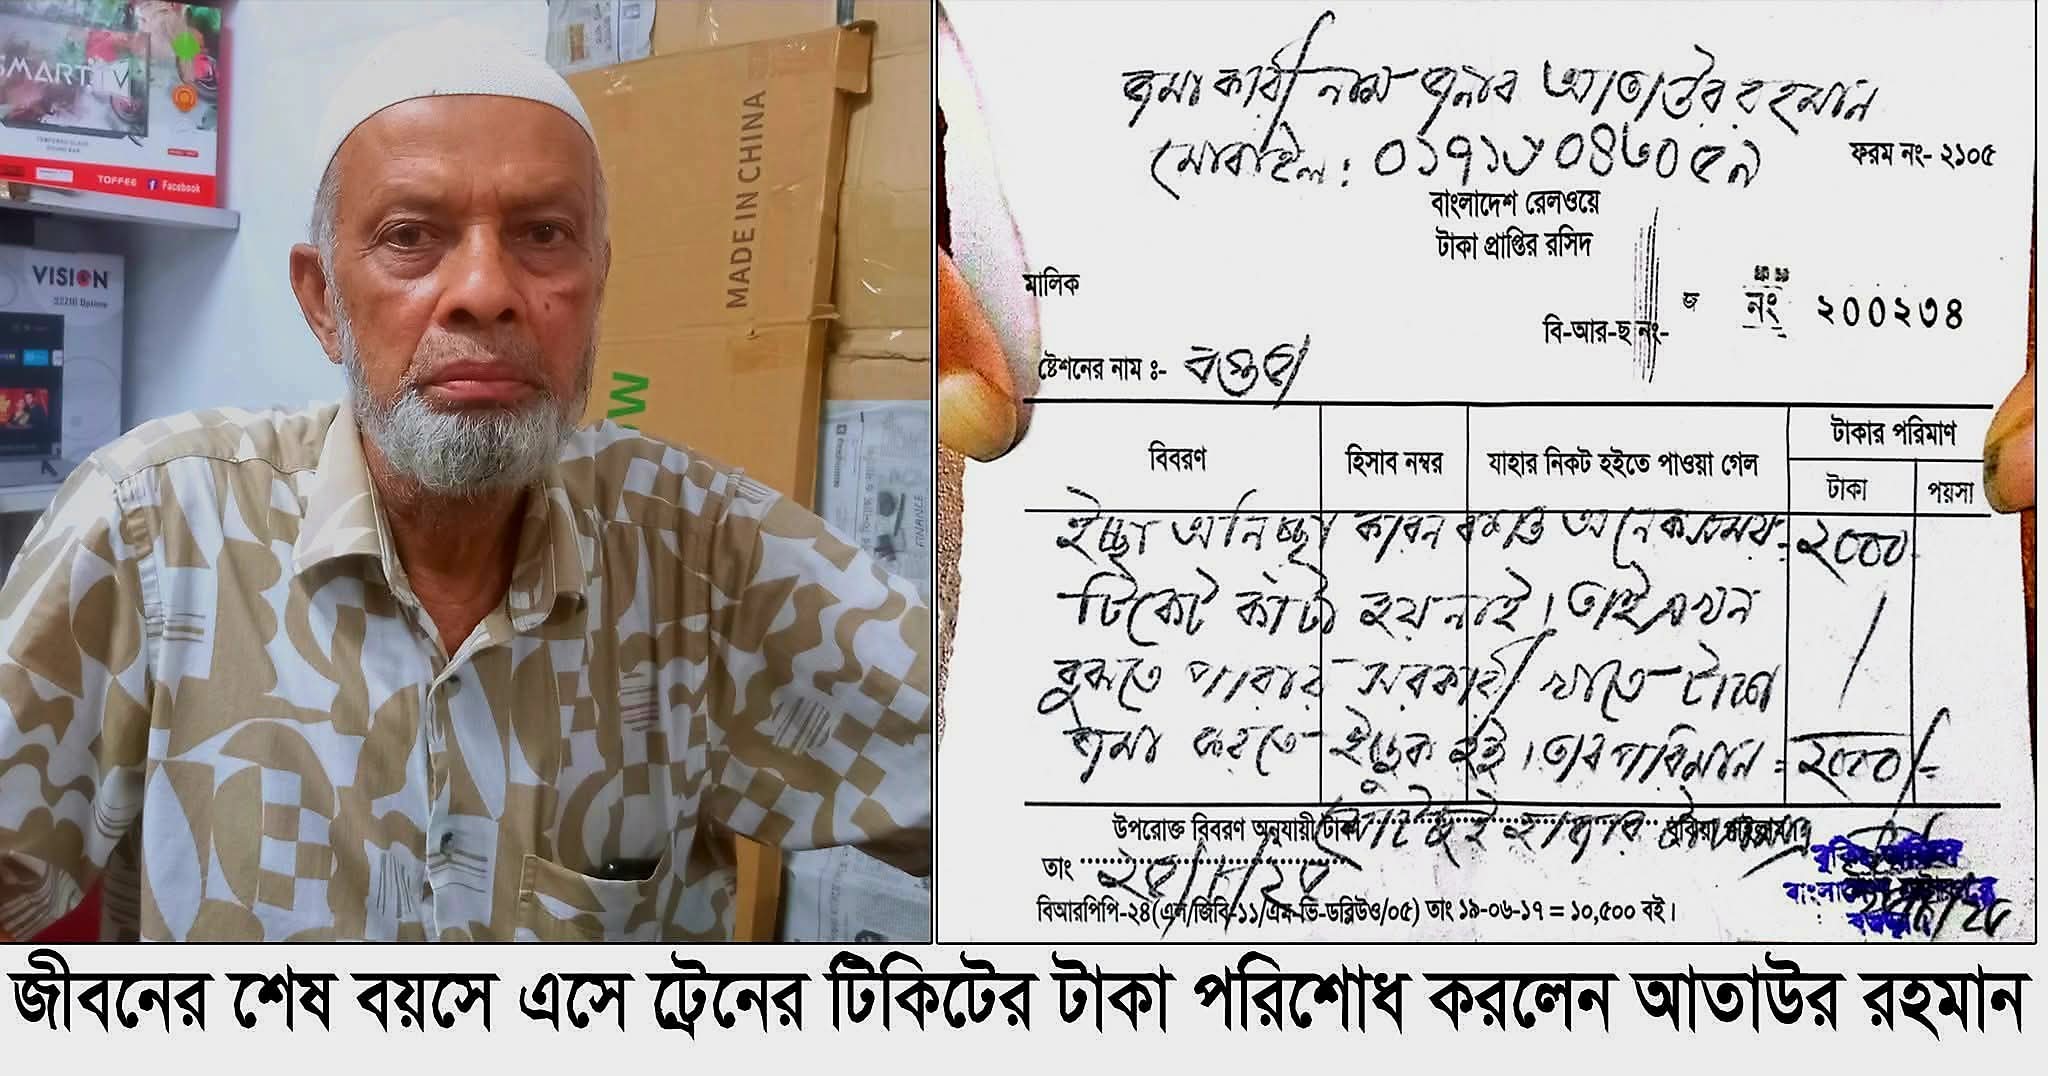 SMART TV
TOFFEE Facebook
VISION
MADE IN CHINA
FINANCE
জমাকারী নাম জনাব আতাউর রহমান
মোবাইল: ০১৭১৮০৪৬০৫৯
ফরম নং- ২১০৫
বাংলাদেশ রেলওয়ে
টাকা প্রাপ্তির রসিদ
মালিক
জ নং ২০০২৩৪
বি-আর-ছ নং-
ষ্টেশনের নাম ঃ- বগুড়া
বিবরণ হিসাব নম্বর যাহার নিকট হইতে পাওয়া গেল টাকার পরিমাণ
টাকা পয়সা
ইচ্ছা অনিচ্ছা কারন বশত অনেক সময় = ২০০০
টিকেট কাটা হয় নাই। তাই এখন
বুঝতে পারায় সরকারী খাতে টাকা
জমা করতে ইচ্ছুক হই। তার পরিমান = ২০০০/=
উপরোক্ত বিবরণ অনুযায়ী টাকা মোট দুই হাজার টাকা
তাং
বিআরপিপি-২৪(এল/জিবি-১১/এম-ভি-ডব্লিউও/০৫) তাং ১৯-০৬-১৭ = ১০,৫০০ বই।
জীবনের শেষ বয়সে এসে ট্রেনের টিকিটের টাকা পরিশোধ করলেন আতাউর রহমান